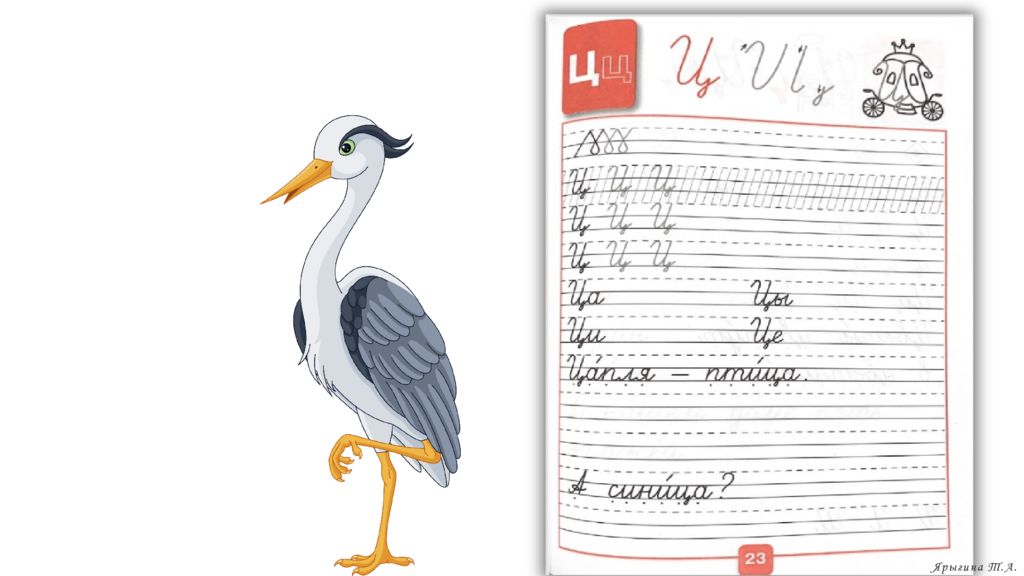 Цц Ц
Ц Ц Ц
Ц Ц Ц
Ц Ц Ц
Ца Цы
Ци Це
Ца́пля — пти́ца.
А сини́ца?
23
Ярыгина Т.А.